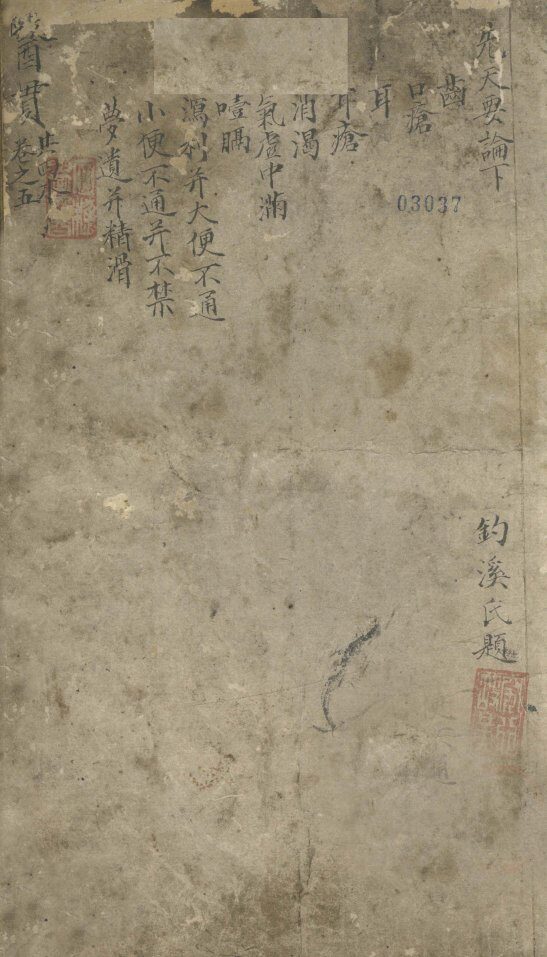 先天要論下
齒
口瘡
耳
耳瘡
消渴
氣虛中滿
噎膈
瀉利并大便不通
小便不通并不禁
夢遺并精滑
醫貫
共四本
卷之五
03037
釣溪氏題